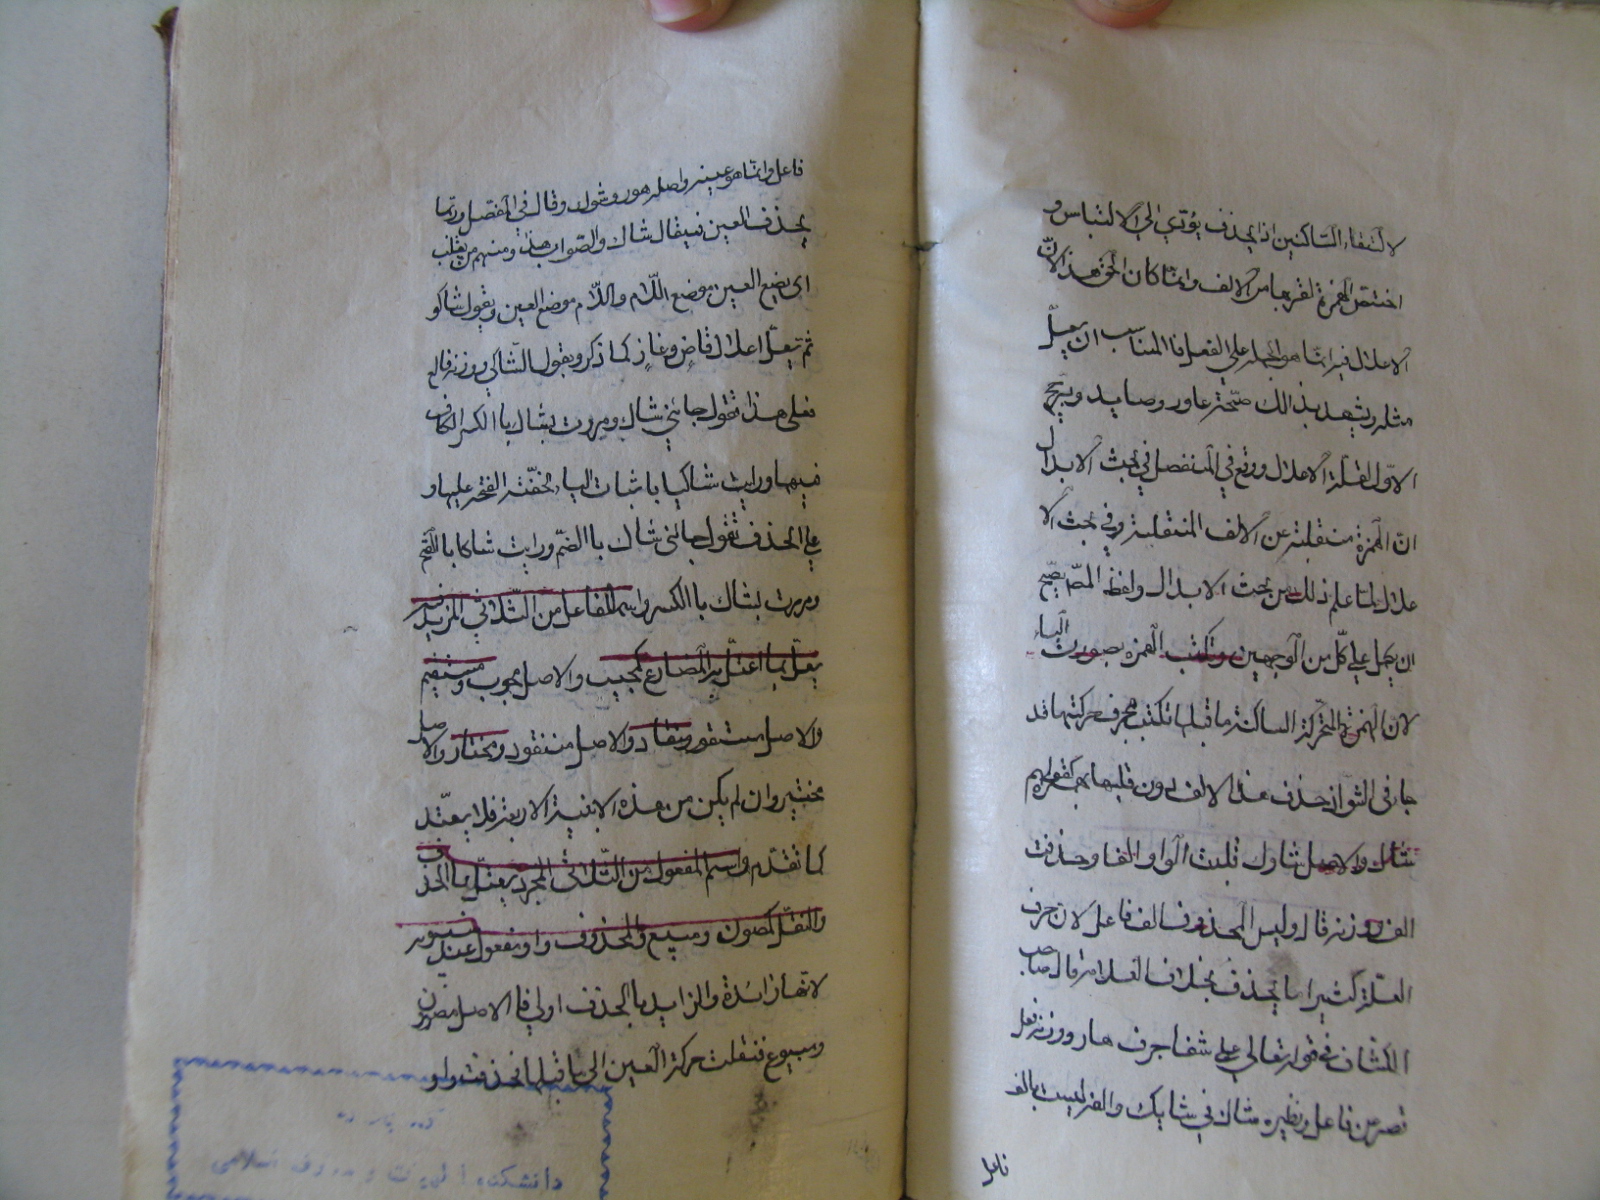 لالتقاء الساكنين اذ الحذف يؤدي الي الالتباس و
اختص الهمزة لقربها من الالف وانما كان الحق هذا لان
الاعلال فيه انما هو بالحمل على الفعل فالمناسب ان يعلّ
مثله ويشهد بذالك صحّة عاور وصايد ويرجح
الاوّل لقلة الاعلال ووقع في المفصل في بحث الابدال
انّ الهمزة منقلبة عن الالف المنقلبة وفي بحث الا
علال لما علم ذلك من بحث الابدال ولفظ المصّ يصح
ان يحمل على كلّ من الوجهين وتكتب الهمزه بصورت الياء
لان الهمزة المتحركة الساكنة ما قبلها تكتب بحرف حركتها قد
جاء في الشواذ حذف هذا الالف دون قلبها همزة كقولهم
شاك والاصل شاوك قلبت الواو الفا وحذفت
الف ووزنه قال وليس المحذوف الف فاعل لان حرف
العلة كثيرا ما يحذف بخلاف العلامة قال صاحب
الكشاف في قوله تعالي علي شفا جرف هار ووزنه فعل
قصر من فاعل ونظيره شاك في شايك والفه ليست بالف
فاعل
فاعل وانما هو عينه واصله هور وشوك وقال في المفصل وربما
يحذف العين فيقال شاك والصواب هذا ومنهم من يقلب
اى يضع العين موضع اللّام واللّام موضع العين ويقول شاكو
ثم تعلّ اعلال قاضٍ وغازٍ كما ذكر ويقول الشاكي ووزنه فالع
فعلى هذا تقول جائني شاك ومررت بشاك باالكسر الكاف
فيهما ورايت شاكيا باثبات الياء لخفّته الفتحة عليها و
علي الحذف تقول جائني شاك باالضم ورايت شاكا باالفتح
ومررت بشاك باالكسر واسم الفاعل من الثلاثي المزيد فيه
يعتلّ بما اعتلّ به المضارع كمجيب والاصل مجوب ومستقيم
والاصل مستقوم ومنقاد والاصل منقود ومختار والاصل
مختير وان لم يكن من هذه الابنية الاربعة فلا يعتل
كما تقدم واسم المفعول من الثلاثى المجرد يعتل بما الحذف
والنقل كمصون ومبيع والمحذوف واو مفعول عند سيبويه
لانها زائدة والزايد باالحذف اولي فالاصل مصوون
ومبيوع فنقلت حركة العين الى ما قبلها فحذفت واو